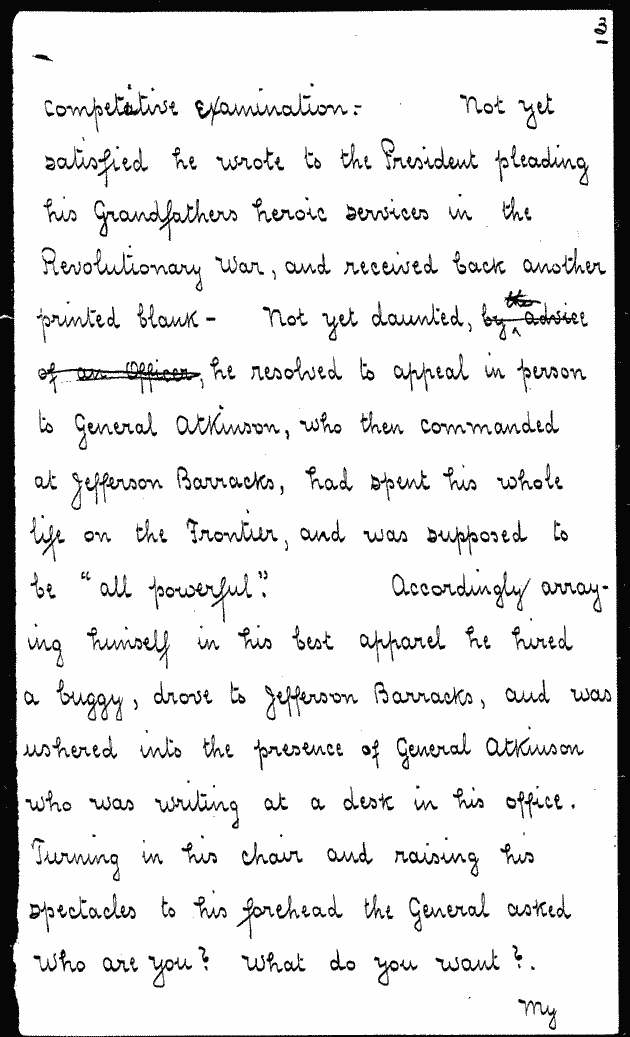 3
competitive examination.- Not yet
satisfied he wrote to the President pleading
his Grandfathers heroic services in the
Revolutionary War, and received back another
printed blank - Not yet daunted, by the advice
of an Officer, he resolved to appeal in person
to General Atkinson, who then commanded
at Jefferson Barracks, had spent his whole
life on the Frontier, and was supposed to
be "all powerful". Accordingly array-
ing himself in his best apparel he hired
a buggy, drove to Jefferson Barracks, and was
ushered into the presence of General Atkinson
who was writing at a desk in his office.
Turning in his chair and raising his
spectacles to his forehead the General asked
Who are you? What do you want?.
My